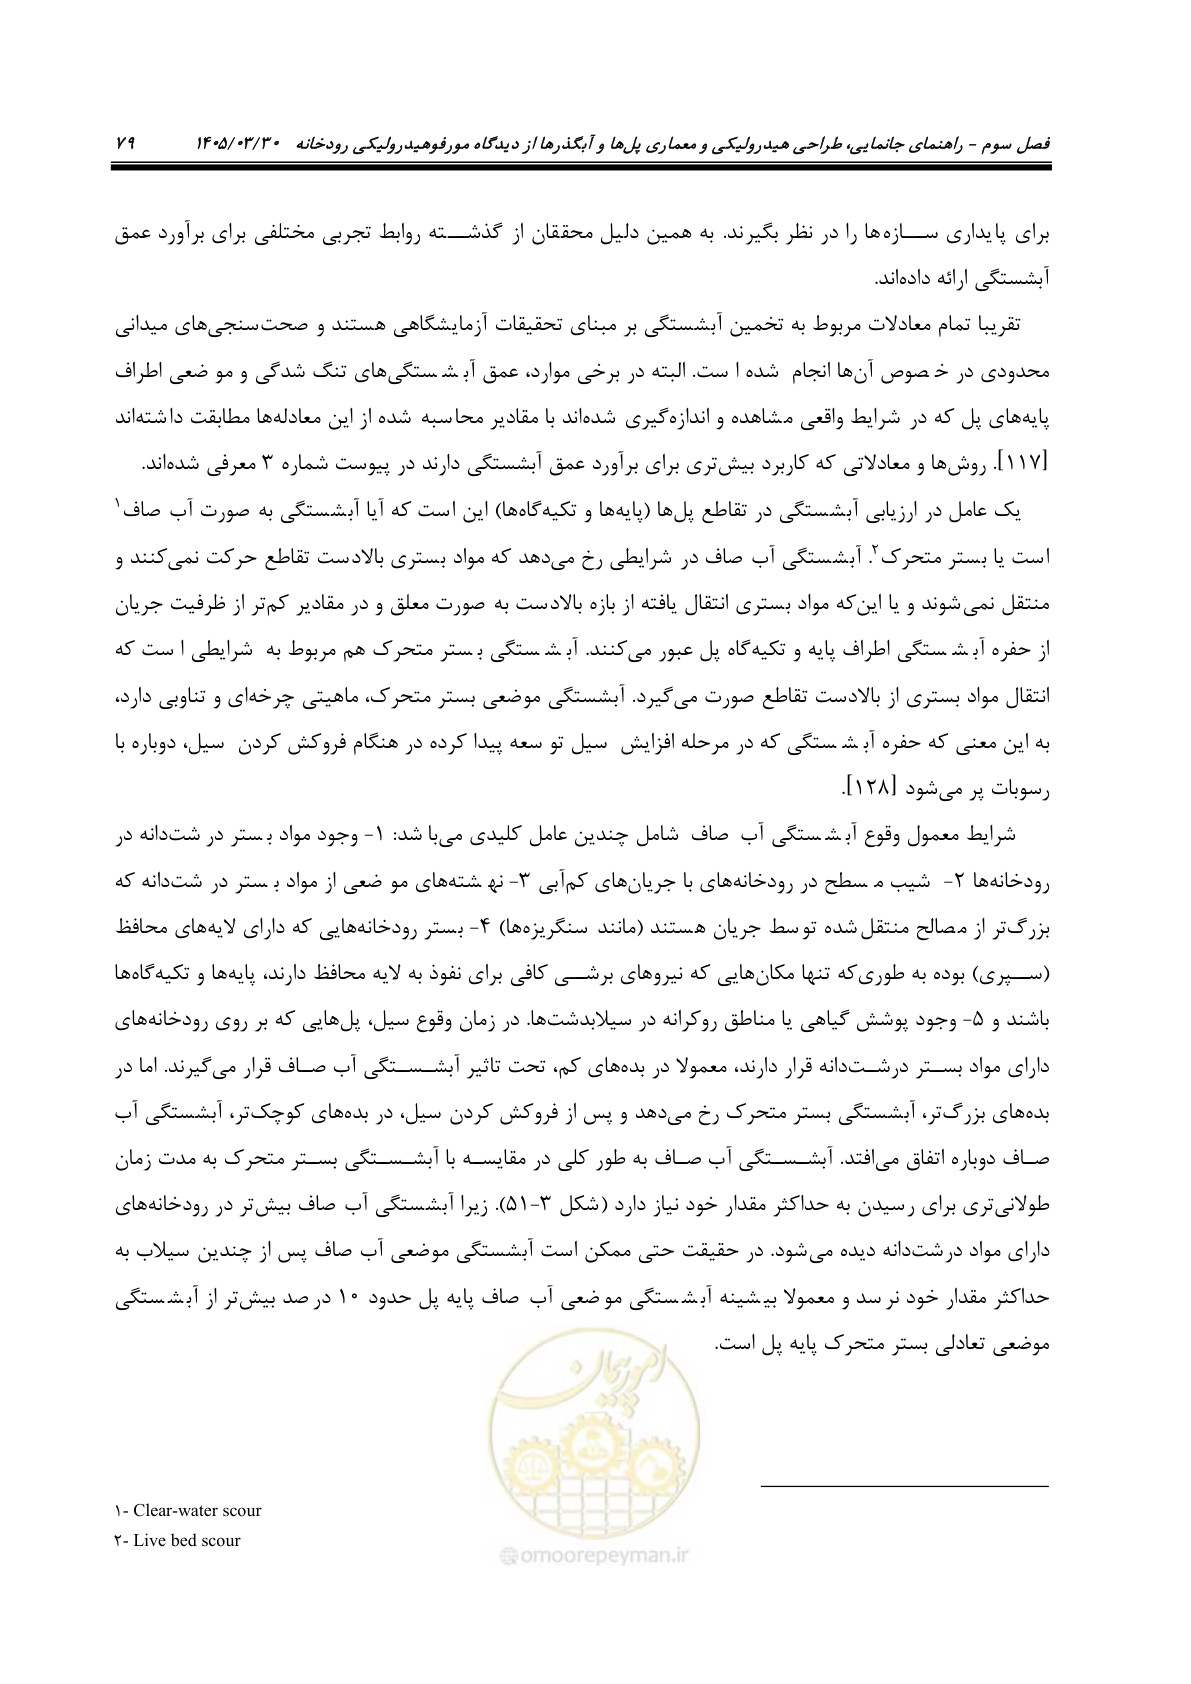 فصل سوم – راهنمای جانمایی، طراحی هیدرولیکی و معماری پل‌ها و آبگذرها از دیدگاه مورفوهیدرولیکی رودخانه ۱۴۰۵/۰۳/۳۰ ۷۹
برای پایداری سازه‌ها را در نظر بگیرند. به همین دلیل محققان از گذشته روابط تجربی مختلفی برای برآورد عمق
آبشستگی ارائه داده‌اند.
تقریبا تمام معادلات مربوط به تخمین آبشستگی بر مبنای تحقیقات آزمایشگاهی هستند و صحت‌سنجی‌های میدانی
محدودی در خصوص آن‌ها انجام شده است. البته در برخی موارد، عمق آبشستگی‌های تنگ شدگی و موضعی اطراف
پایه‌های پل که در شرایط واقعی مشاهده و اندازه‌گیری شده‌اند با مقادیر محاسبه شده از این معادله‌ها مطابقت داشته‌اند
[۱۱۷]. روش‌ها و معادلاتی که کاربرد بیش‌تری برای برآورد عمق آبشستگی دارند در پیوست شماره ۳ معرفی شده‌اند.
یک عامل در ارزیابی آبشستگی در تقاطع پل‌ها (پایه‌ها و تکیه‌گاه‌ها) این است که آیا آبشستگی به صورت آب صاف۱
است یا بستر متحرک۲. آبشستگی آب صاف در شرایطی رخ می‌دهد که مواد بستری بالادست تقاطع حرکت نمی‌کنند و
منتقل نمی‌شوند و یا این‌که مواد بستری انتقال یافته از بازه بالادست به صورت معلق و در مقادیر کم‌تر از ظرفیت جریان
از حفره آبشستگی اطراف پایه و تکیه‌گاه پل عبور می‌کنند. آبشستگی بستر متحرک هم مربوط به شرایطی است که
انتقال مواد بستری از بالادست تقاطع صورت می‌گیرد. آبشستگی موضعی بستر متحرک، ماهیتی چرخه‌ای و تناوبی دارد،
به این معنی که حفره آبشستگی که در مرحله افزایش سیل توسعه پیدا کرده در هنگام فروکش کردن سیل، دوباره با
رسوبات پر می‌شود [۱۲۸].
شرایط معمول وقوع آبشستگی آب صاف شامل چندین عامل کلیدی می‌باشد: ۱- وجود مواد بستر درشت‌دانه در
رودخانه‌ها ۲- شیب مسطح در رودخانه‌های با جریان‌های کم‌آبی ۳- نهشته‌های موضعی از مواد بستر درشت‌دانه که
بزرگ‌تر از مصالح منتقل‌شده توسط جریان هستند (مانند سنگریزه‌ها) ۴- بستر رودخانه‌هایی که دارای لایه‌های محافظ
(سپری) بوده به طوری‌که تنها مکان‌هایی که نیروهای برشی کافی برای نفوذ به لایه محافظ دارند، پایه‌ها و تکیه‌گاه‌ها
باشند و ۵- وجود پوشش گیاهی یا مناطق روکرانه در سیلابدشت‌ها. در زمان وقوع سیل، پل‌هایی که بر روی رودخانه‌های
دارای مواد بستر درشت‌دانه قرار دارند، معمولا در بده‌های کم، تحت تاثیر آبشستگی آب صاف قرار می‌گیرند. اما در
بده‌های بزرگ‌تر، آبشستگی بستر متحرک رخ می‌دهد و پس از فروکش کردن سیل، در بده‌های کوچک‌تر، آبشستگی آب
صاف دوباره اتفاق می‌افتد. آبشستگی آب صاف به طور کلی در مقایسه با آبشستگی بستر متحرک به مدت زمان
طولانی‌تری برای رسیدن به حداکثر مقدار خود نیاز دارد (شکل ۳-۵۱). زیرا آبشستگی آب صاف بیش‌تر در رودخانه‌های
دارای مواد درشت‌دانه دیده می‌شود. در حقیقت حتی ممکن است آبشستگی موضعی آب صاف پس از چندین سیلاب به
حداکثر مقدار خود نرسد و معمولا بیشینه آبشستگی موضعی آب صاف پایه پل حدود ۱۰ درصد بیش‌تر از آبشستگی
موضعی تعادلی بستر متحرک پایه پل است.
امور پیمان
۱- Clear-water scour
۲- Live bed scour
@omoorepeyman.ir